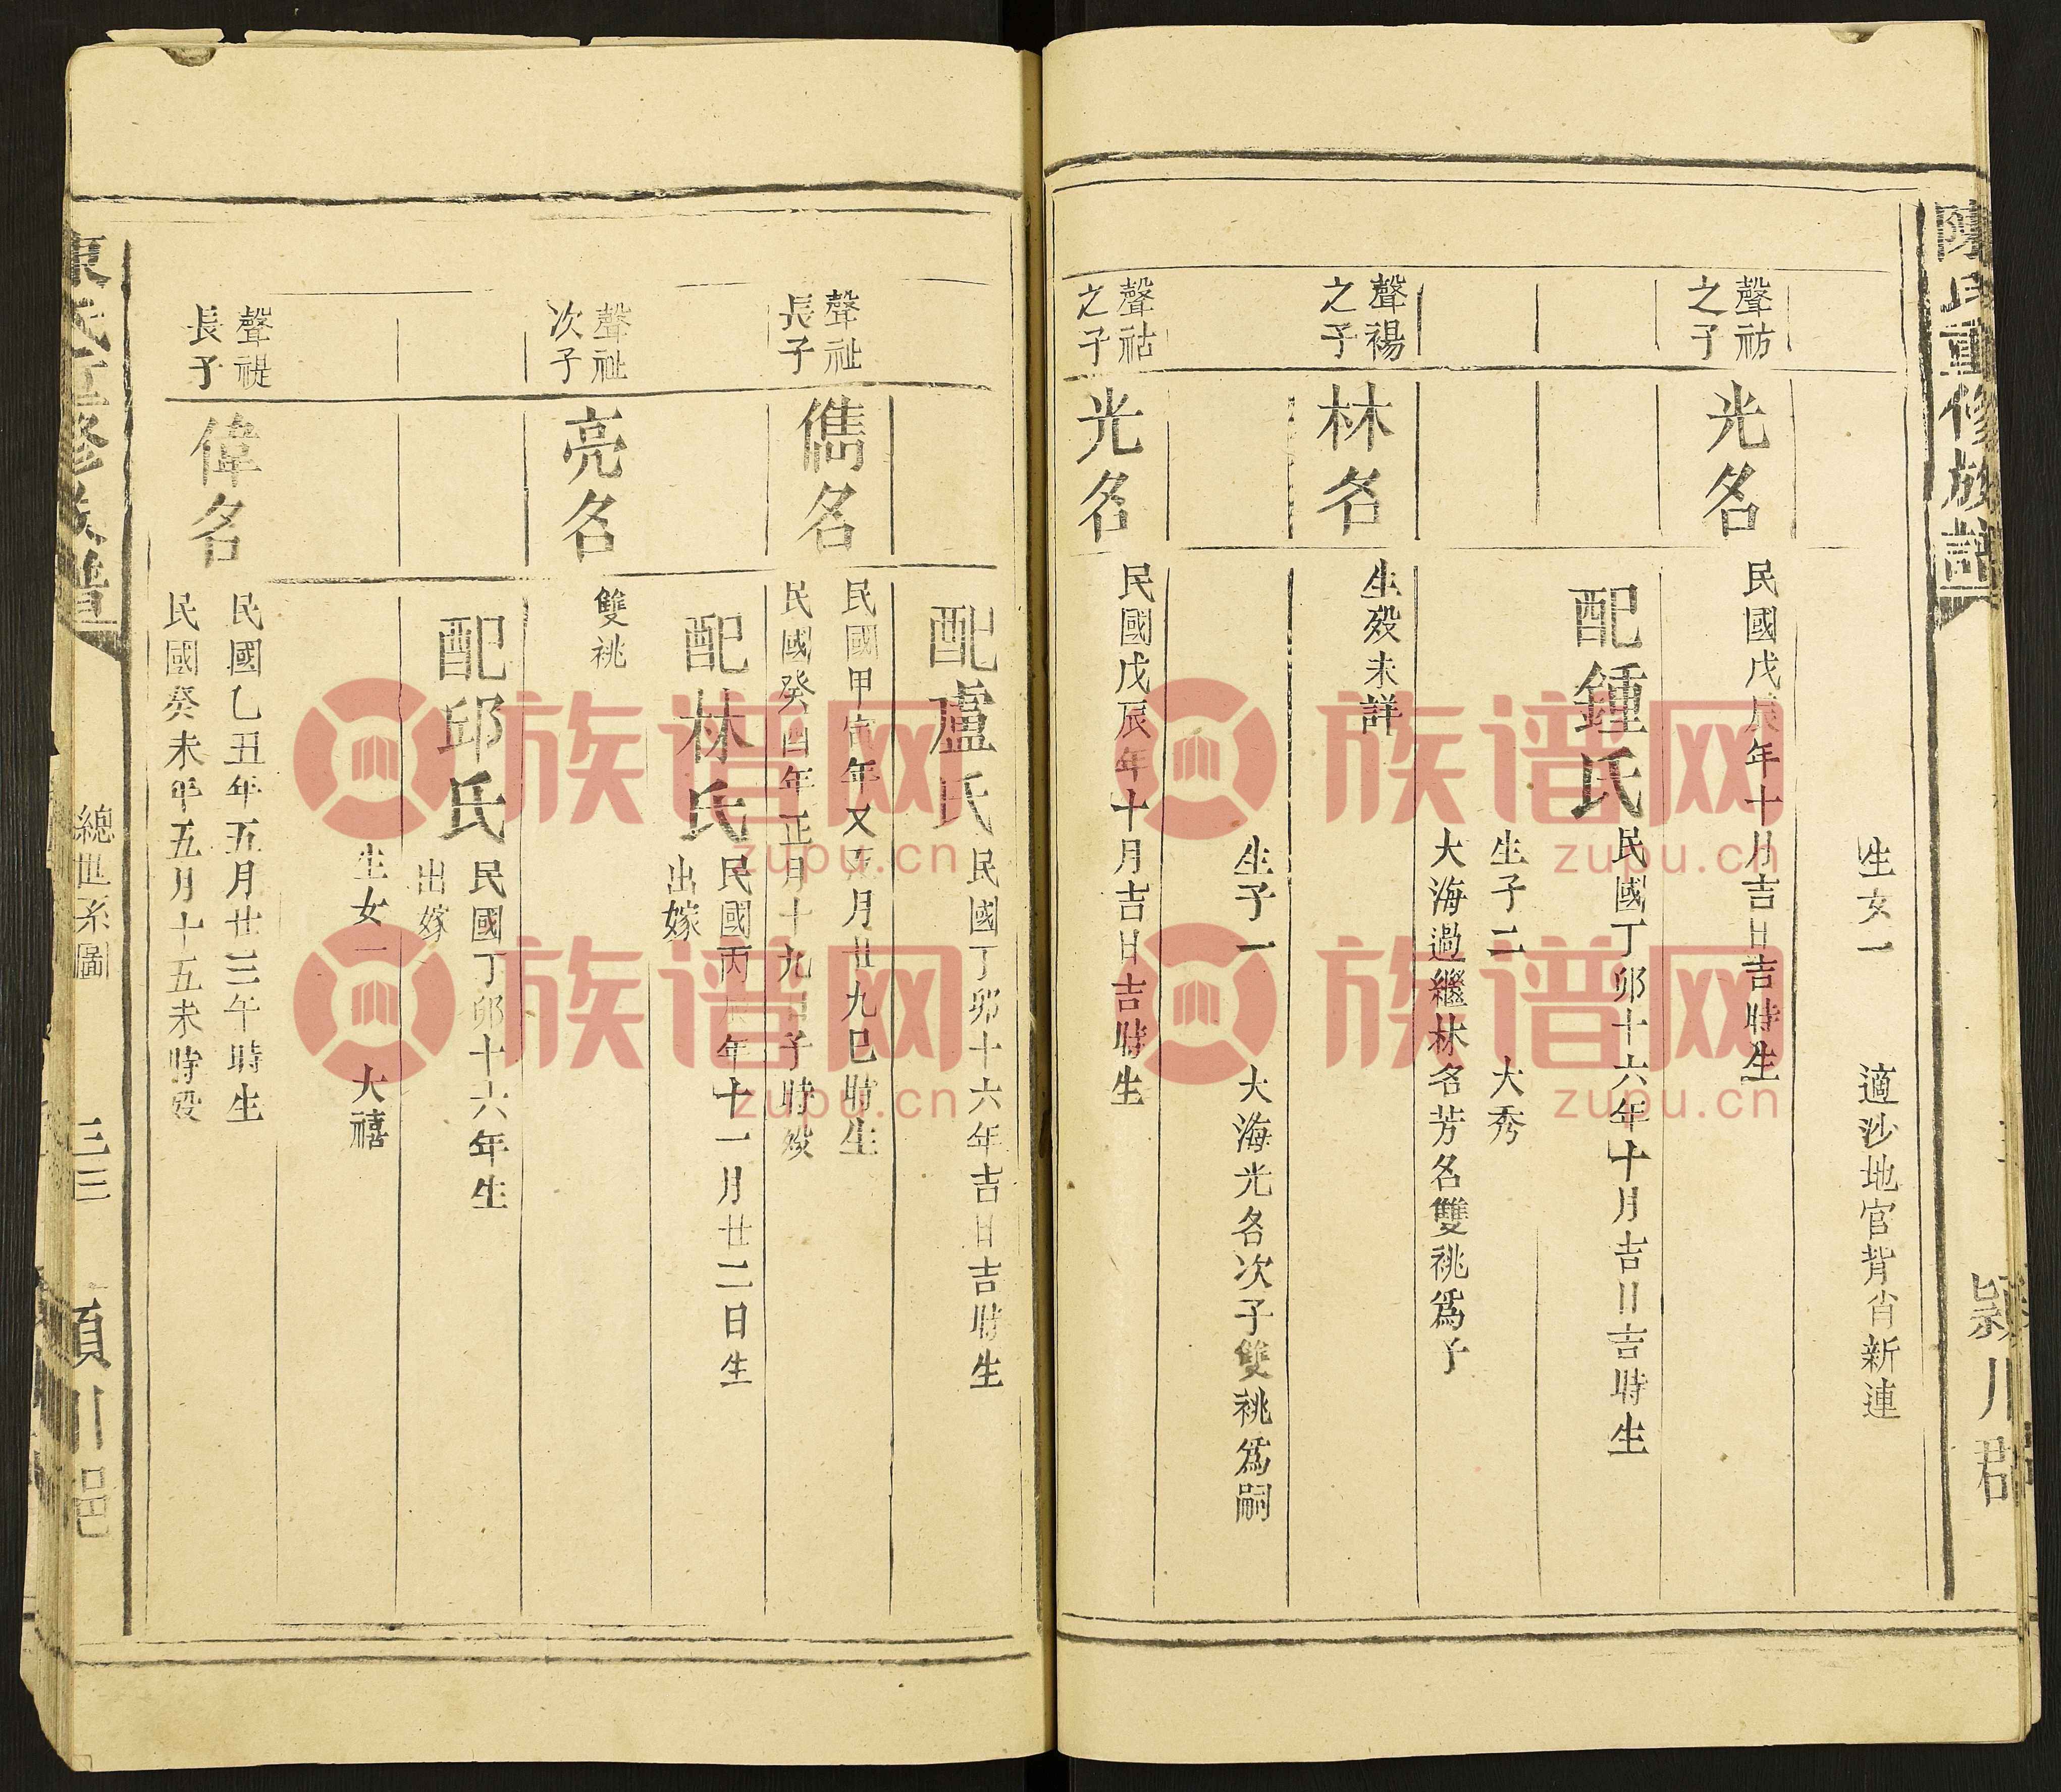 陳氏重修族譜
潁川群
生女一 適沙地官背肖新連
聲祊
之子
光名
民國戊辰年十月吉日吉時生
配鍾氏
民國丁卯十六年十月吉日吉時生
生子二 大秀
大海過繼林名芳名雙祧爲子
聲禓
之子
林名
生歿未詳
生子一 大海光名次子雙祧爲嗣
聲祜
之子
光名
民國戊辰年十月吉日吉時生
配盧氏
民國丁卯十六年吉日吉時生
聲祉
長子
儁名
民國甲寅年又五月廿九巳時生
民國癸酉年正月十九日子時歿
配林氏
民國丙辰年十一月廿二日生
出嫁
聲祉
次子
亮名
雙祧
配邱氏
民國丁卯十六年生
出嫁
生女一 大禧
聲禔
長子
偉名
民國乙丑年五月廿三午時生
民國癸未年五月十五未時歿
總世系圖
族谱网
zupu.cn
族谱网
zupu.cn
族谱网
zupu.cn
族谱网
zupu.cn